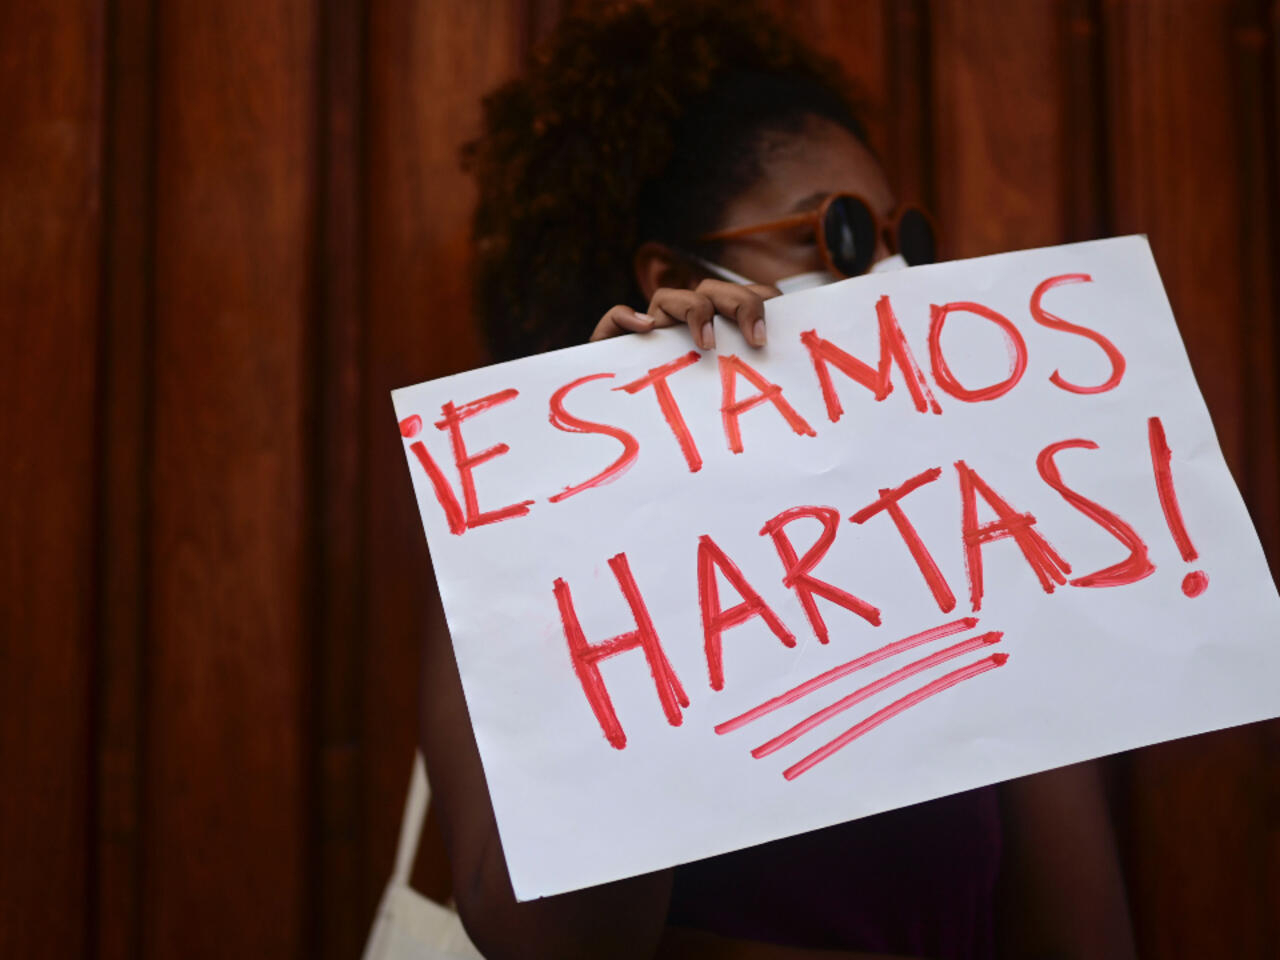 ¡ESTAMOS
HARTAS!